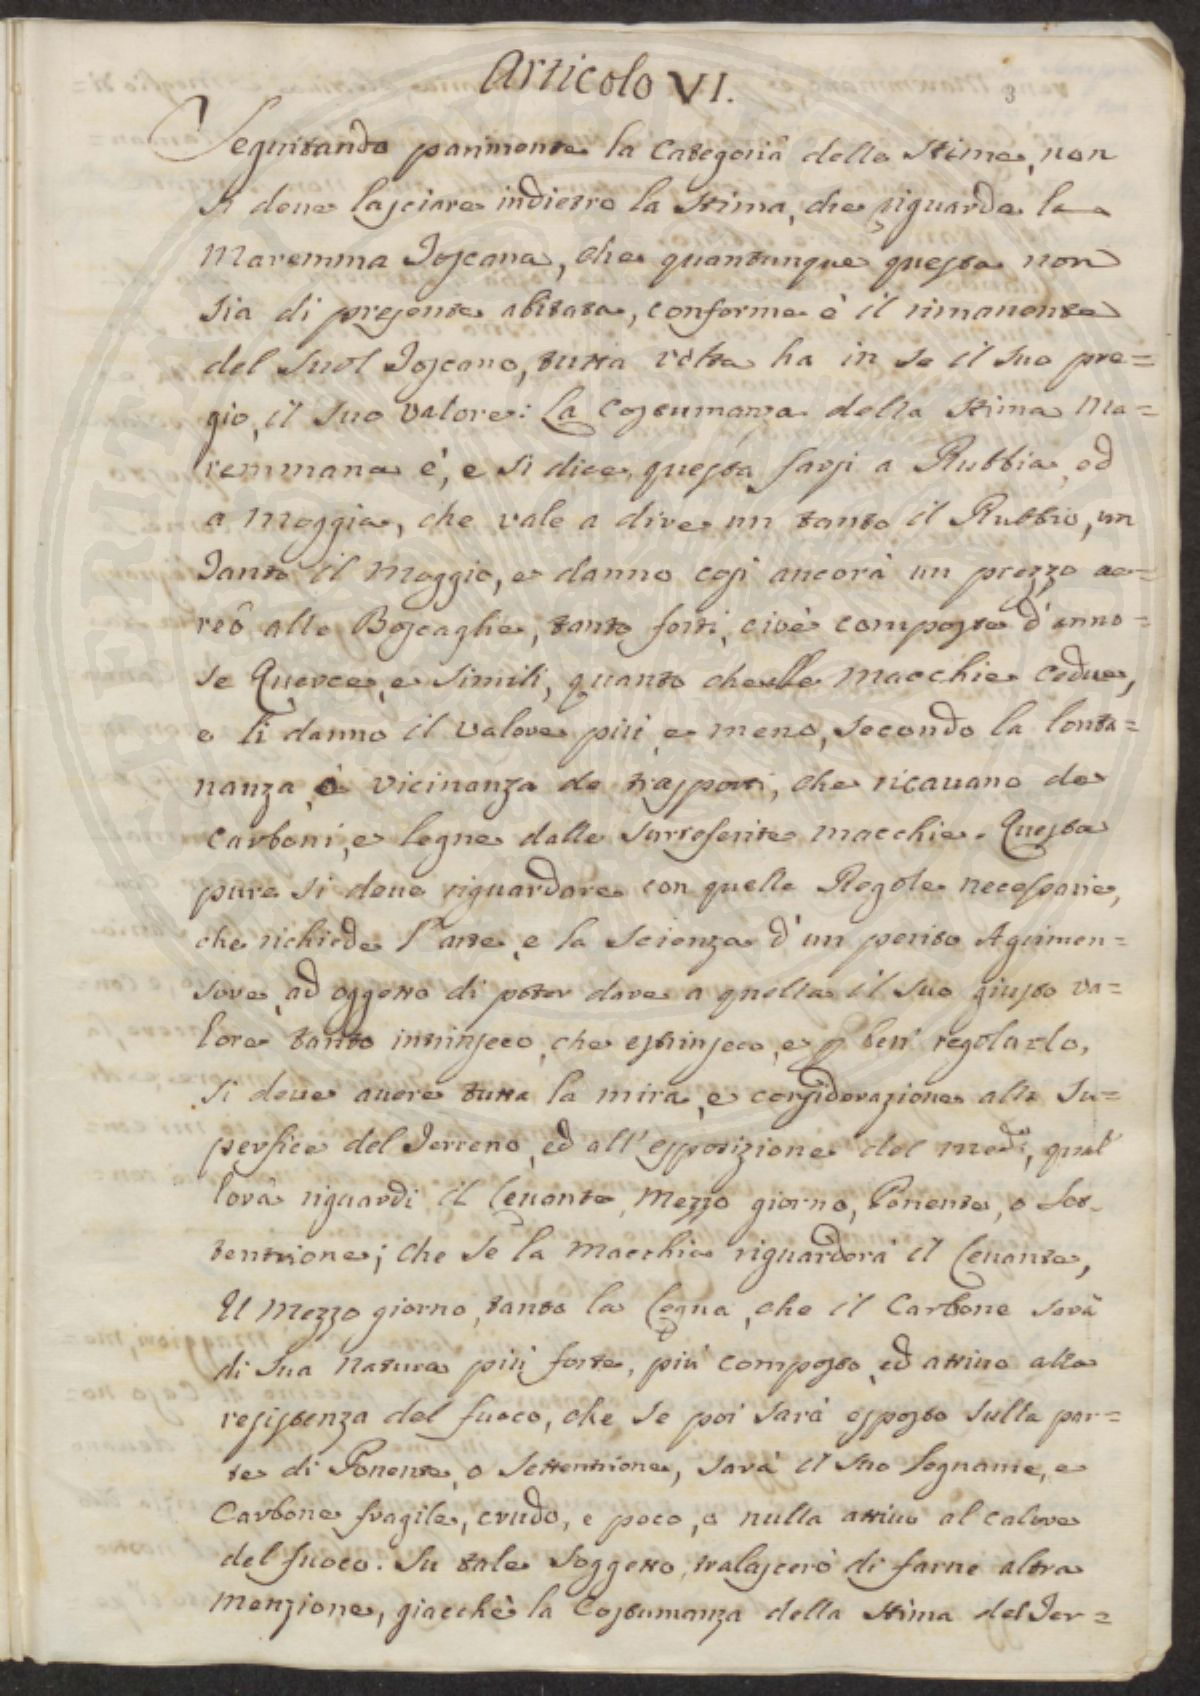 Articolo VI.
3
Seguitando parimente la Categoria delle Stime, non
si deve lasciare indietro la Stima, che riguarda la
Maremma Toscana, che quantunque questa non
sia di presente abitata, conforme è il rimanente
del Suol Toscano, tutta volta ha in se il suo pre=
gio, il suo valore: La Costumanza della Stima Ma=
remmana è, e si dice, questa farsi a Rubbia, ed
a Moggia, che vale a dire un tanto il Rubbio, un
Tanto il Moggio, e danno così ancorà un prezzo ae=
reô alle Boscaglie, tanto forti, cioè composte d'anno=
se Querce, e simili, quanto che alle Macchie Cedue,
e li danno il valore più, e meno, secondo la lonta=
nanza, ò vicinanza de trasporti, che ricavano de
Carboni, e legne dalle surreferite macchie. Questa
pure si deve riguardare con quelle Regole necessarie,
che richiede l'arte, e la Scienza d'un perito Agrimen=
sore, ad oggetto di poter dare a quella il suo giusto va=
lore tanto intrinseco, che estrinseco, e p ben' regolarlo,
si deve avere tutta la mira, e considerazione alla Su=
perfice del Terreno, ed all'esposizione del med:, qual'
lorà riguardi il Levante, Mezzo giorno, Ponente, o Set=
tentrione; che se la Macchia riguarderà il Levante,
Il Mezzo giorno, tanto la Legna, che il Carbone sarà
di sua natura più forte, più composto, ed attivo alla
resistenza del fuoco, che se poi sarà esposto sulla par=
te di Ponente, o Settentrione, sarà il suo legname, e
Carbone fragile, crudo, e poco, o nulla attivo al calore
del fuoco. Su tale soggetto, tralascerò di farne altra
Menzione, giacchè la Costumanza della Stima del Ter=